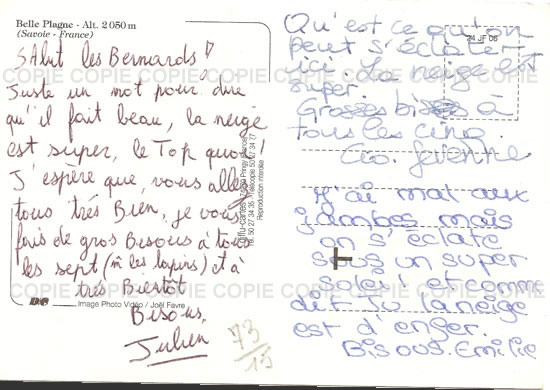 Belle Plagne - Alt. 2 050 m
(Savoie - France)
SAlut les Bernards !
Juste un mot pour dire
qu'il fait beau, la neige
est super, le Top quoi !
J'espère que vous allez
tous très Bien, je vous
fais de gros Bisous à tous
les sept (m les lapins) et à
très Bientôt
Bisous,
Julien
Image Photo Vidéo / Joël Favre
Reproduction interdite
73/15
24 JF 06
Qu'est ce qu'on
peut s'éclater
ici. La neige est
super.
Grosses bises à
tous les cinq.
J'ai mal aux
jambes mais
on s'éclate
sous un super
soleil et comme
dit Ju la neige
est d'enfer.
Bisous. Emilie
COPIE COPIE COPIE COPIE COPIE COPIE COPIE
COPIE COPIE COPIE COPIE COPIE COPIE COPIE
COPIE COPIE COPIE COPIE COPIE COPIE COPIE